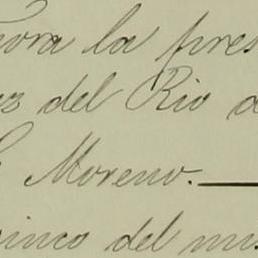 ñora la pres
ez del Rio d
Moreno.—
cinco del mis